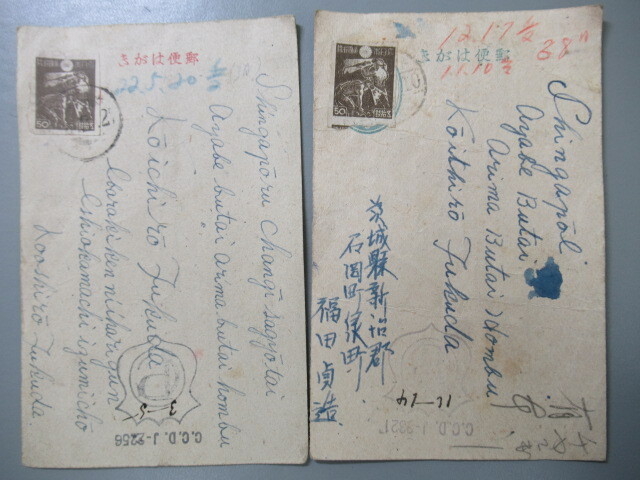 郵便はがき
22.5.20
50
Shingapōru Changi sagyōtai
Ayabe butai arima butai hombu
Kōichirō Fukuda
Ibaraki ken niihari gun
Ishiokamachi izumichō
Kooshirō Fukuda
3-5
C.C.D. J-2256
12.17
38
郵便はがき
11.10
50
Shingapōl
Ayabe Butai
Arima Butai Hombu
Kōithirō Fukuda
茨城縣新治郡
石岡町泉町
福田貞造
11-14
C.C.D. J-2221